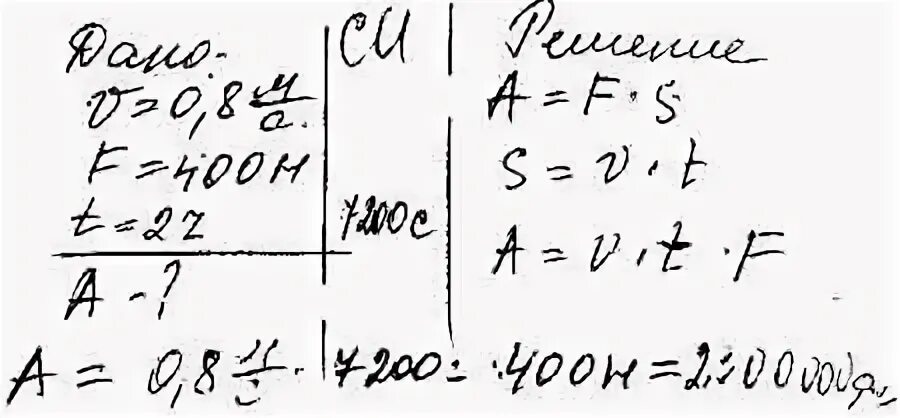 Дано:
v = 0,8 м/с
F = 400 Н
t = 2 ч
A - ?
СИ
7200 с
Решение
A = F · S
S = v · t
A = v · t · F
A = 0,8 м/с · 7200 с · 400 Н =